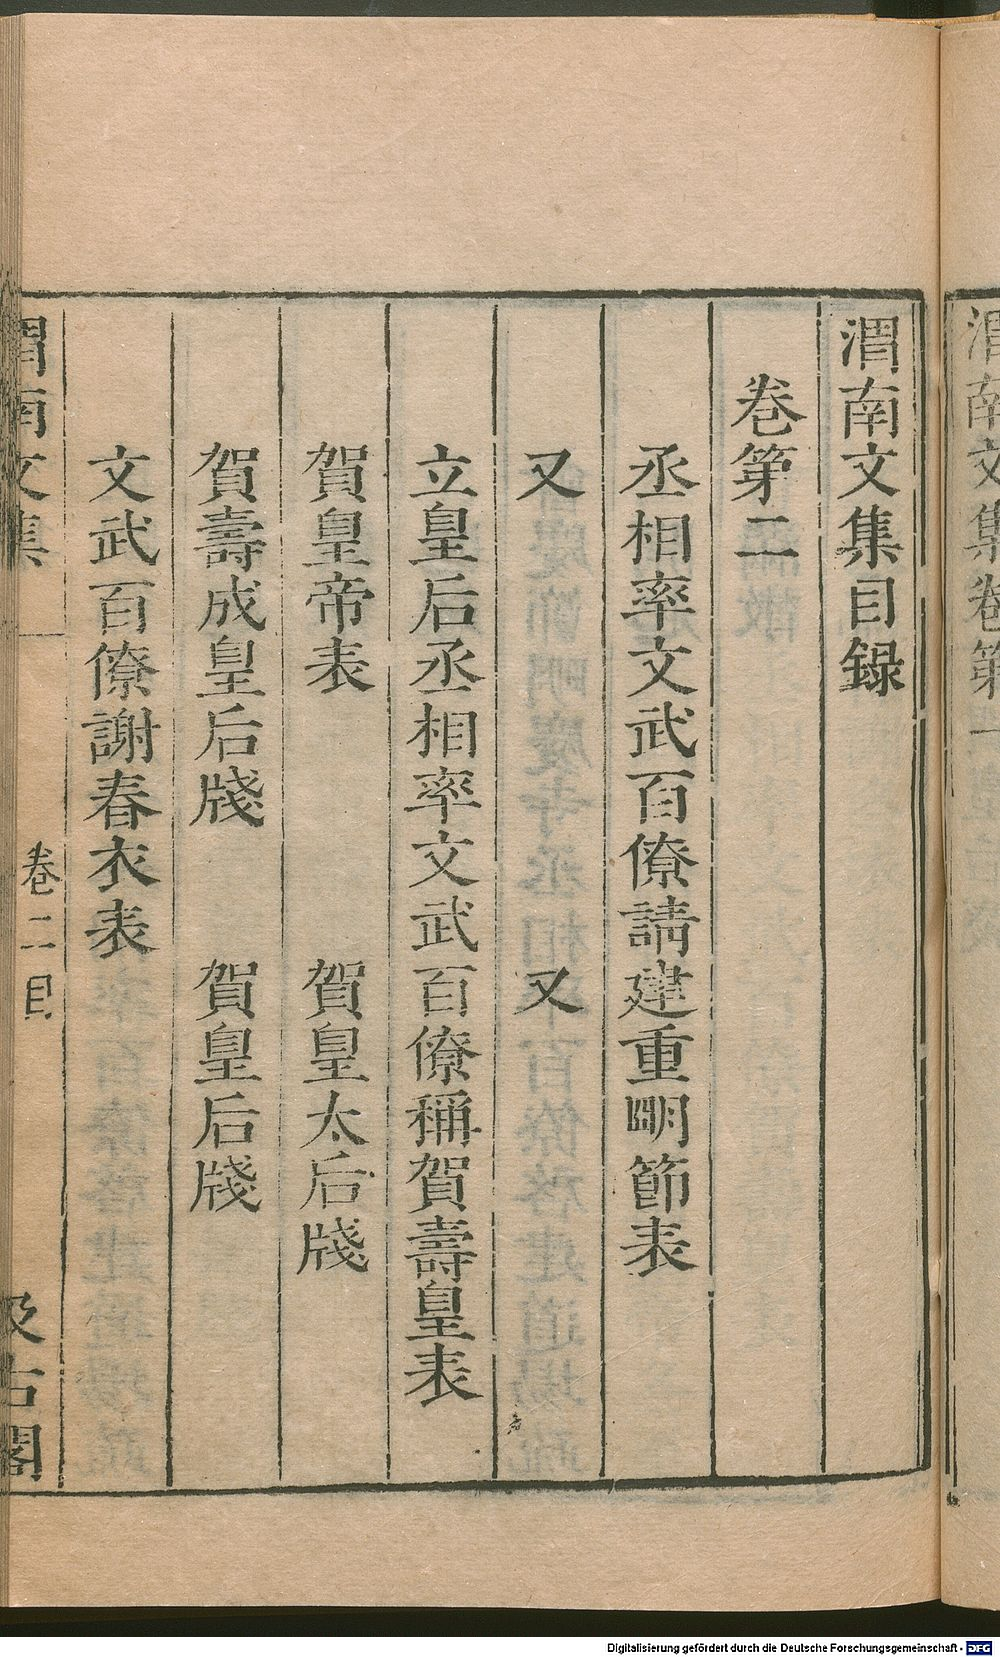 渭南文集卷第一
渭南文集目録
卷第二
丞相率文武百僚請建重明節表
又 又
立皇后丞相率文武百僚稱賀壽皇表
賀皇帝表 賀皇太后牋
賀壽成皇后牋 賀皇后牋
文武百僚謝春衣表
渭南文集 卷二目 汲古閣
Digitalisierung gefördert durch die Deutsche Forschungsgemeinschaft - DFG